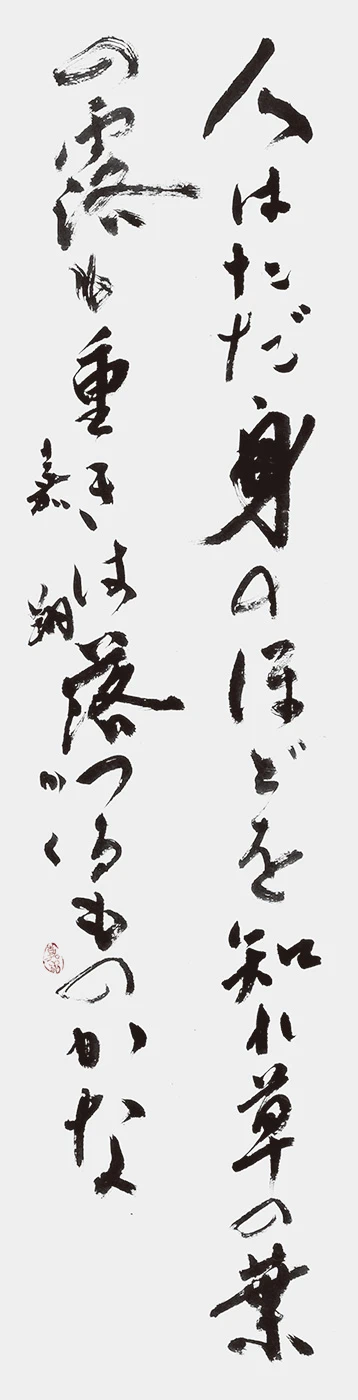 人はただ身のほどを知れ草の葉
の露も重きは落つるものかな
嘉翔かく